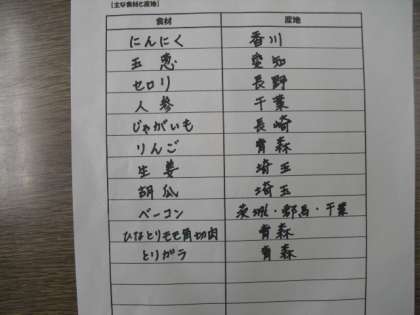 [主な食材と産地]
食材 産地
にんにく 香川
玉葱 愛知
セロリ 長野
人参 千葉
じゃがいも 長崎
りんご 青森
生姜 埼玉
胡瓜 埼玉
ベーコン 茨城・群馬・千葉
ひなとりモモ角切肉 青森
とりガラ 青森